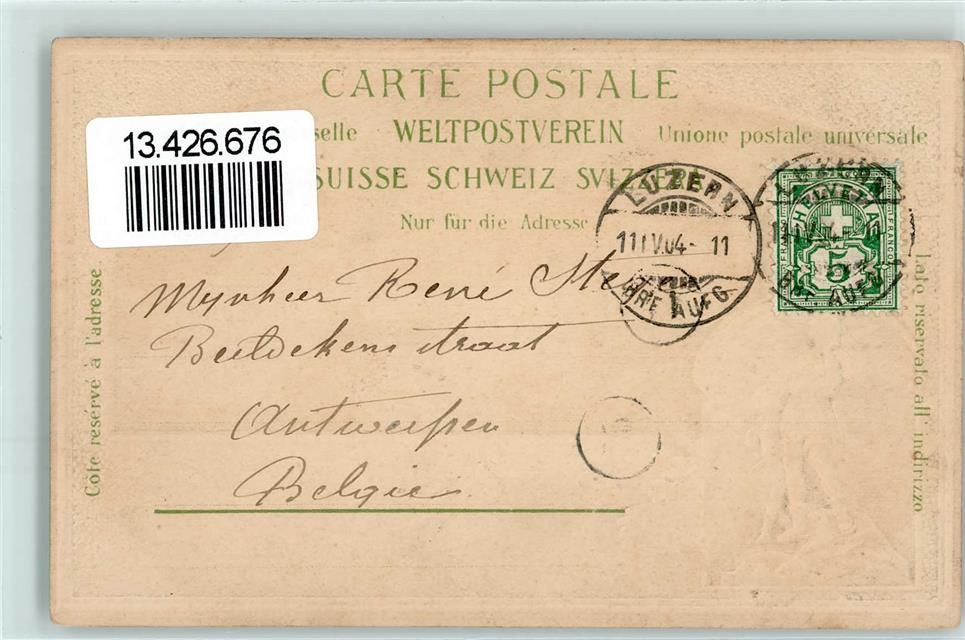 CARTE POSTALE
13.426.676
selle WELTPOSTVEREIN Unione postale universale
SUISSE SCHWEIZ SVIZZERA
Nur für die Adresse
LUZERN
11 IV.04- 11
BRIEF AUFG.
HELVETIA
FRANCO
5
Côté réservé à l'adresse
Lato riservato all' indirizzo
Mynheer René
straat
Antwerpen
Belgie